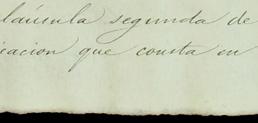 láusula segunda de
icacion que consta en